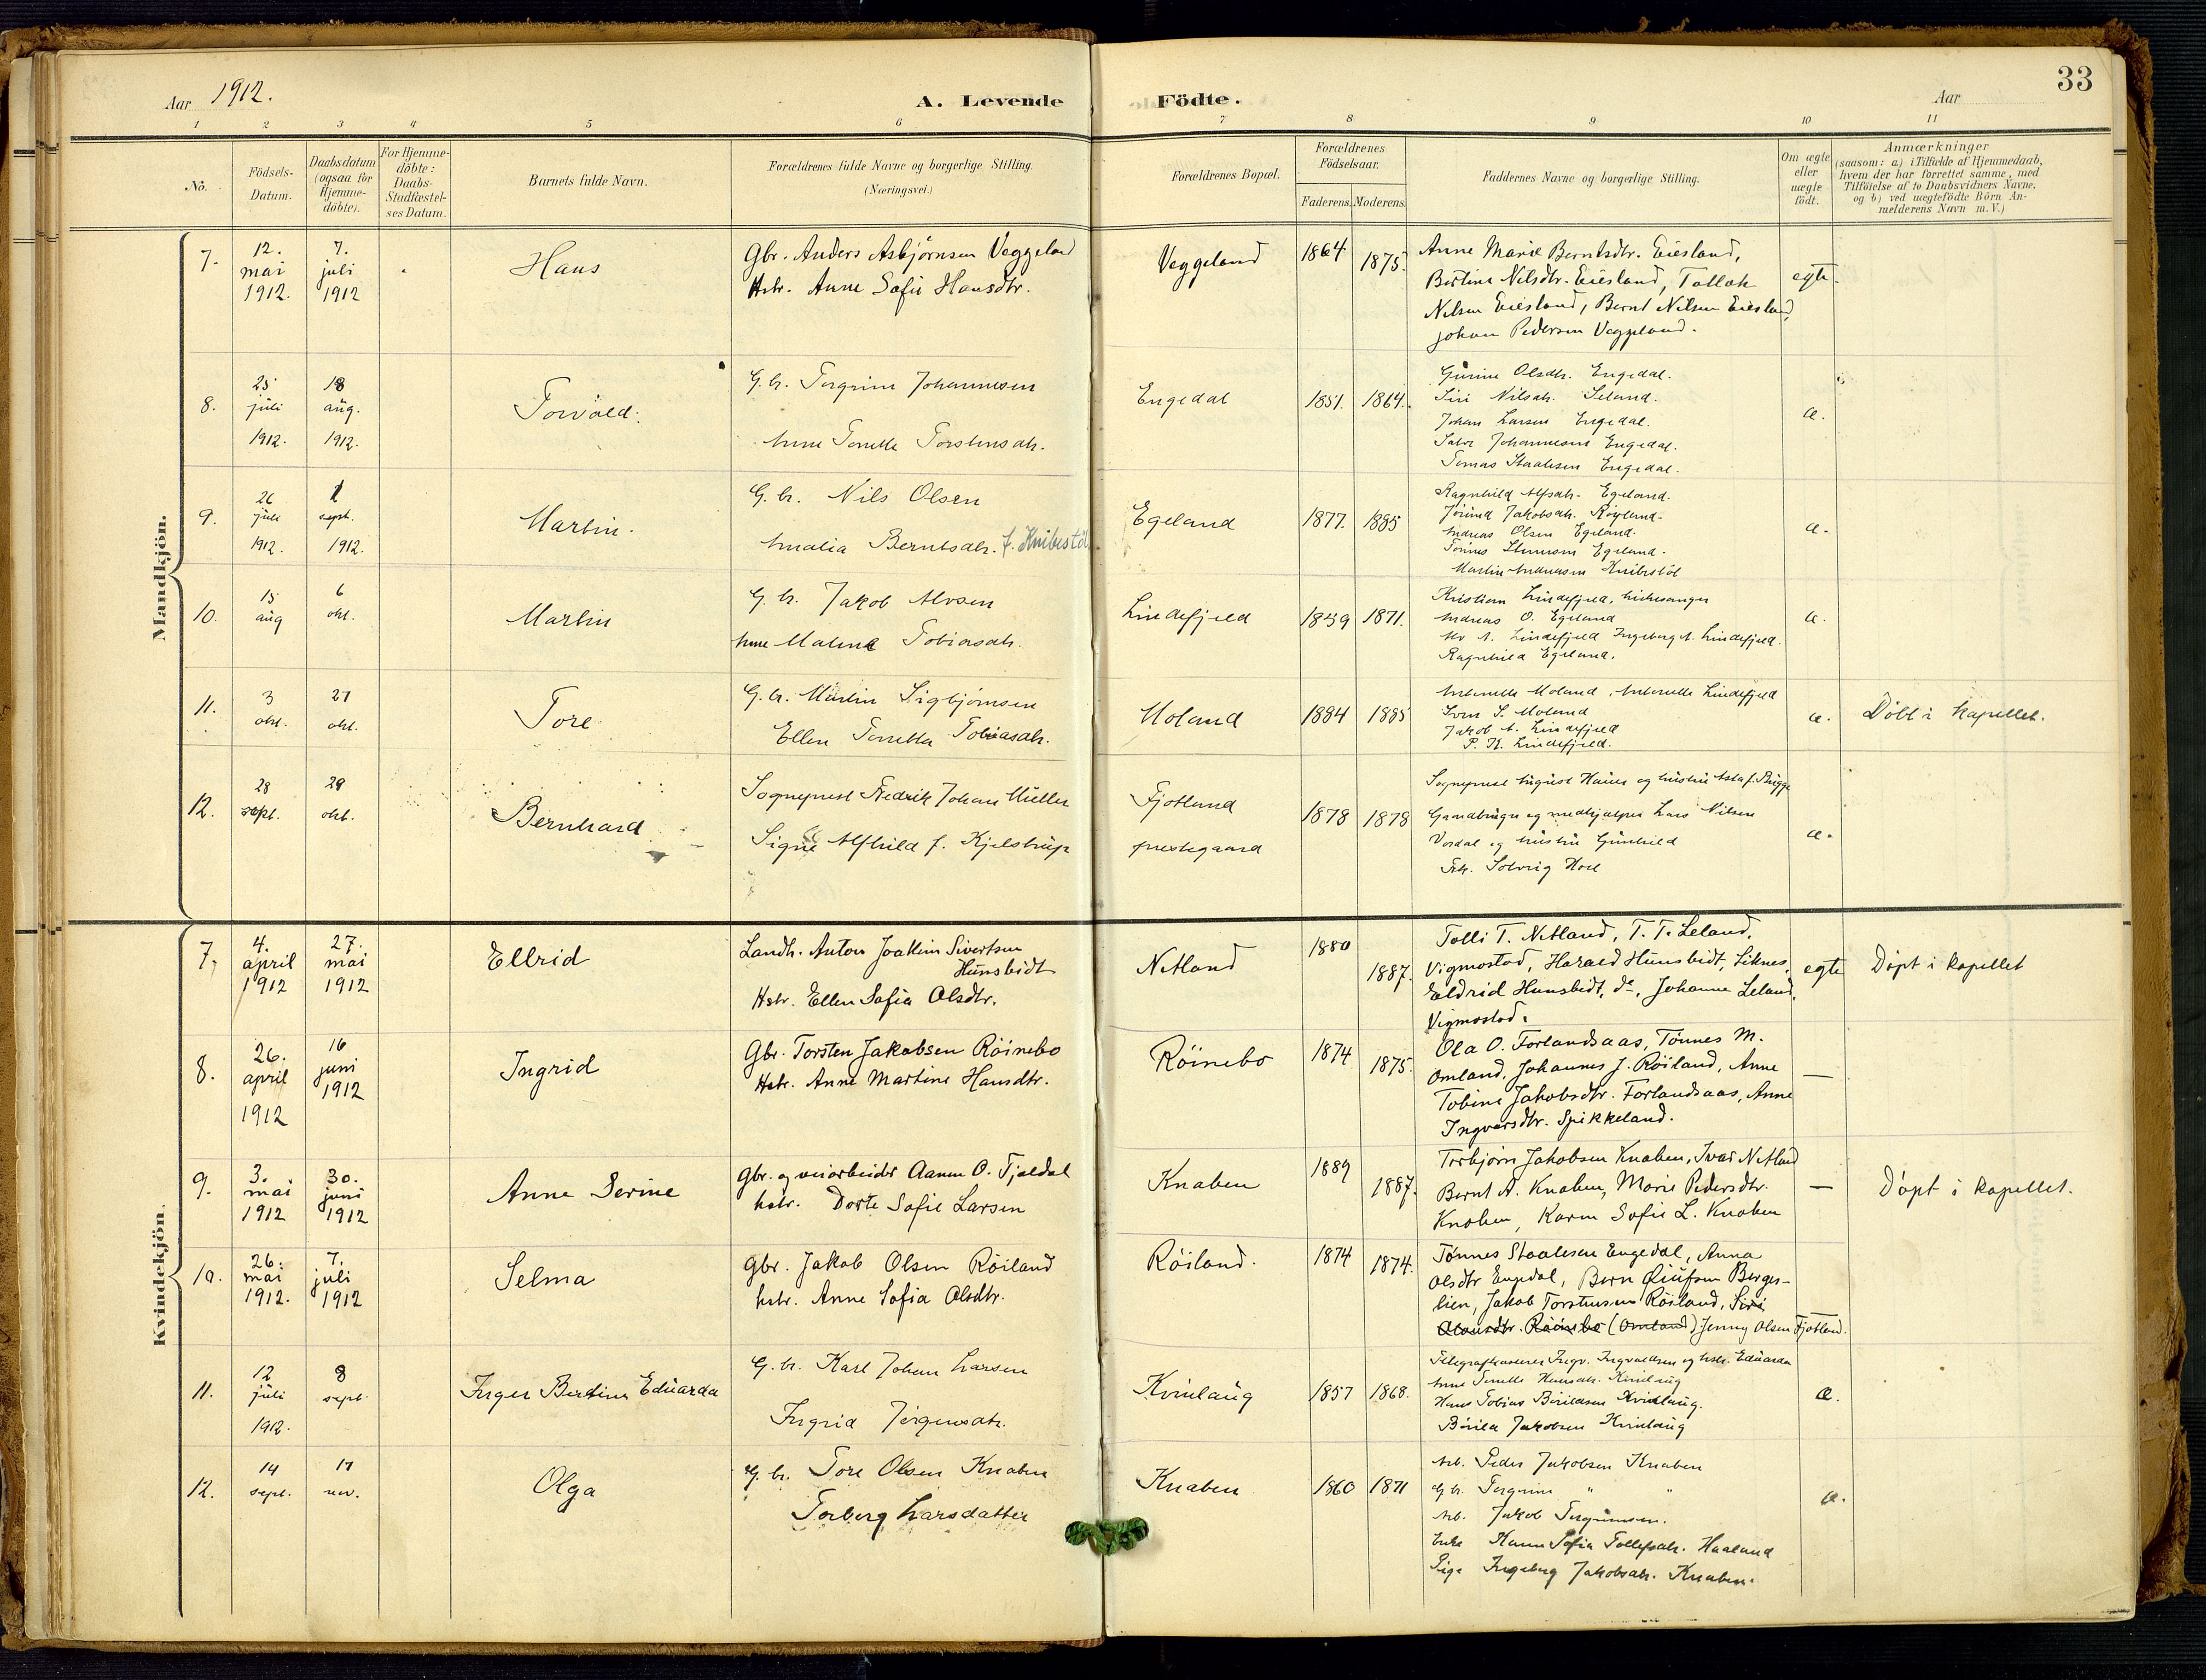 33
Aar 1912.
A. Levende Födte.
Aar
1 2 3 4 5 6 7 8 9 10 11
No.
Födsels-
Datum.
Daabsdatum
(ogsaa for
Hjemme-
döbte).
For Hjemme-
döbte:
Daabs-
Stadfæstel-
ses Datum.
Barnets fulde Navn.
Forældrenes fulde Navne og borgerlige Stilling.
(Næringsvei.)
Forældrenes Bopæl.
Forældrenes
Födselsaar.
Faderens. Moderens.
Faddernes Navne og borgerlige Stilling.
Om ægte
eller
uægte
födt.
Anmærkninger
(saasom: a) i Tilfælde af Hjemmedaab,
hvem der har forrettet samme, med
Tilföielse af to Daabsvidners Navne,
og b) ved uægtefödte Börn An-
melderens Navn m. V.)
Mandkjön.
7.
12.
mai
1912.
7.
juli
1912
Hans
Gbr. Anders Asbjørnsen Veggeland
Hstr. Anne Sofie Hansdtr.
Veggeland
1864
1875.
Anne Marie Berntsdtr. Eiesland,
Bertine Nilsdtr. Eiesland, Tallak
Nilsen Eiesland, Bernt Nilsen Eiesland,
Johan Pedersen Veggeland.
egte.
8.
25
juli
1912.
18
aug.
1912.
Torvald.
G.br. Torgrim Johannesen
Anne Tonette Torstensdtr.
Engedal
1851. 1864.
Gurine Olsdtr. Engedal.
Siri Nilsdtr. Seland.
Johan Larsen Engedal.
Johannesen Engedal.
Tomas Staalesen Engedal.
æ.
9.
26
juli
1912.
1
sept.
1912.
Martin.
G.br. Nils Olsen
Amalia Berntsdtr. f. Knibestöl
Egeland
1877. 1885
Ragnhild Alfsdtr. Egeland.
Jorund Jakobsdtr. Röyland.
Andreas Olsen Egeland.
Tönnes Egeland.
Martin Andreasen Knibestöl
æ.
10.
15
aug
6
okt.
Martin
G.br. Jakob Alvsen
Anne Malene Tobiasdtr.
Lindefjeld
1859 1871.
Kristian Lindefjeld, kirkesanger
Andreas O. Egeland
Alv A. Lindefjeld Ingeborg A. Lindefjeld.
Ragnhild Egeland.
æ.
11.
3
okt.
27
okt.
Tore
G.br. Martin Sigbjørnsen
Ellen Tonette Tobiasdtr.
Moland
1884 1885
Antonette Moland, Antonette Lindefjeld
Sven S. Moland
Jakob A. Lindefjeld
P. K. Lindefjeld.
æ.
Döbt i kapellet.
12.
28
sept.
29
okt.
Bernhard
Sogneprest Fredrik Johan Müller
Signe Alfhild f. Kjelstrup
Fjotland
prestegaard
1878 1878
Sogneprest August Hauer og hustru Asta f. Brügge
Gaardbruger og medhjælper Lars Nilsen
Vordal og hustru Gunhild
Frk. Solveig Hoel
æ.
Kvindekjön.
7.
4.
april
1912
27.
mai
1912
Ellrid
Landh. Anton Joakim Sivertsen
Hunsbedt
Hstr. Ellen Sofia Olsdtr.
Netland
1880
1887.
Tolli T. Netland, T. T. Leland,
Vigmostad, Harald Hunsbedt, Liknes,
Eldrid Hunsbedt, do, Johanne Leland,
Vigmostad.
egte
Döpt i kapellet
8.
26.
april
1912
16
juni
1912
Ingrid
Gbr. Torsten Jakobsen Röinebo
Hstr. Anne Martine Hansdtr.
Röinebo
1874
1875.
Ola O. Forlandsaas, Tönnes M.
Omland, Johannes J. Röiland, Anne
Tobine Jakobsdtr. Forlandsaas, Anne
Ingvarsdtr. Spikkeland.
—
9.
3.
mai
1912
30.
juni
1912
Anne Serine
Gbr. og veiarbeider Aanen O. Fjeldal
hstr. Dorte Sofie Larsen
Knaben
1889
1887.
Torbjörn Jakobsen Knaben, Ivar Netland
Bernt A. Knaben, Marie Pedersdtr.
Knaben, Karen Sofie L. Knaben
—
Döpt i kapellet.
10.
26.
mai
1912.
7.
juli
1912
Selma
Gbr. Jakob Olsen Röiland
hstr. Anne Sofia Olsdtr.
Röiland.
1874
1874.
Tønnes Staalesen Engedal, Anna
Olsdtr Engedal, Bern Berges-
lien, Jakob Torstensen Röiland, Siri
Röinebo (Omland) Jenny Olsen Fjotland.
11.
12
juli
1912.
8
sept.
Inger Bertine Eduarda
G.br. Karl Johan Larsen
Ingrid Jörgensdtr.
Kvinlaug
1857 1868.
Telegrafkasserer Ingv. Ingvaldsen og hstr. Eduarda
Anne Tonette Hansdtr. Kvinlaug
Hans Tobias Börildsen Kvinlaug.
Börild Jakobsen Kvinlaug
æ.
12.
14
sept.
17
nov.
Olga
G.br. Tore Olsen Knaben
Torborg Larsdatter
Knaben
1860 1871
Arb. Peder Jakobsen Knaben
G.br. Torgrim " "
Arb. Jakob Torgrimsen.
Enke Karen Sofia Tollefsdtr. Haaland
Pige Ingeborg Jakobsdtr. Knaben.
æ.